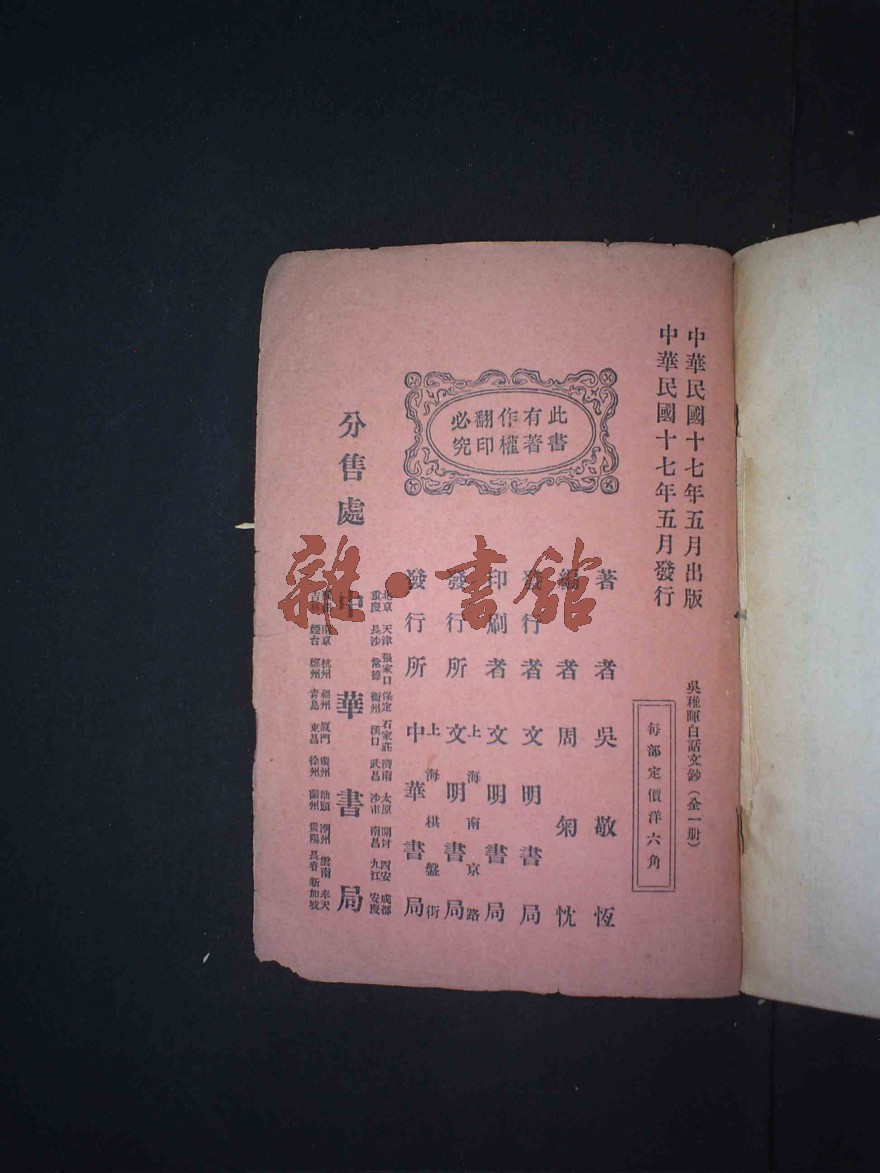 中華民國十七年五月出版
中華民國十七年五月發行
吳稚暉白話文鈔(全一册)
每部定價洋六角
此書
有著
作權
翻印
必究
著者吳敬恆
編者周菊忱
發行者文明書局
印刷者文明書局
上海南京路
發行所文明書局
上海棋盤街
發行所中華書局
分售處
北京 天津 張家口 保定 石家莊 濟南 太原 開封 西安 成都
重慶 長沙 常德 衡州 漢口 武昌 沙市 南昌 九江 安慶
中華書局
南京 杭州 福州 厦門 廣州 汕頭 潮州 雲南 奉天
吉林 煙台 鄭州 青島 東昌 徐州 蘭州 貴陽 長春 新加坡
雜·書館